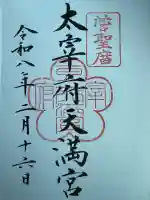 太宰府天満宮
令和八年二月十六日